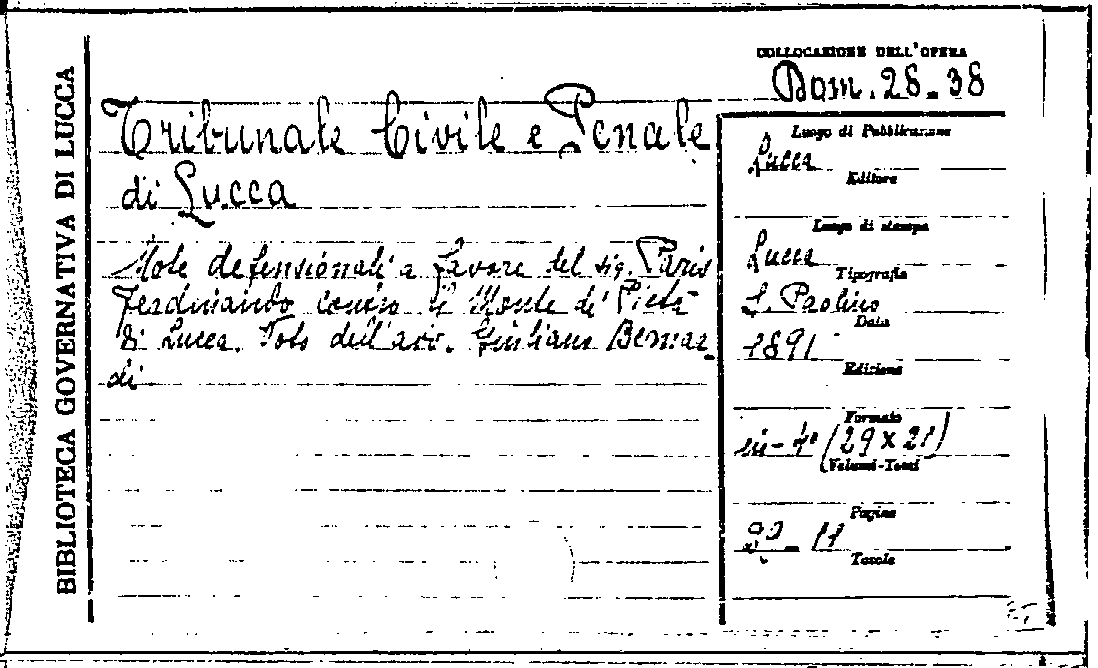 BIBLIOTECA GOVERNATIVA DI LUCCA
COLLOCAZIONE DELL'OPERA
Dom. 28-38
Tribunale Civile e Penale
di Lucca
Note defensionali a favore del sig. Paris
Ferdinando contro il Monte di Pietà
di Lucca. Voto dell'avv. Giuliano Bernar-
di
Luogo di Pubblicazione
Lucca
Editore
Luogo di stampa
Lucca
Tipografia
S. Paolino
Data
1891
Edizione
Formato
in-4° (29 x 21)
Volumi-Tomi
Pagine
11
Tavole